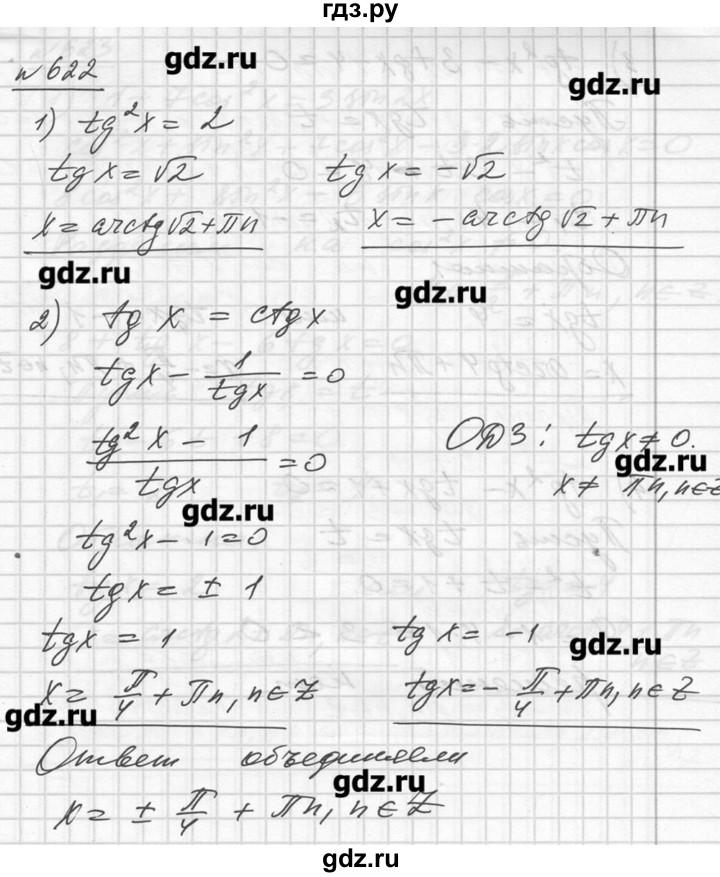 гдз.ру
№622
gdz.ru
gdz.ru
1) tg²x = 2
tgx = √2
tg x = -√2
x = arctg√2+πn
x = - arctg√2 + πn
gdz.ru
gdz.ru
2) tg x = ctgx
tgx - 1/tgx = 0
(tg²x - 1)/tgx = 0
ОДЗ: tgx ≠ 0.
gdz.ru
x ≠ πn, n∈Z
gdz.ru
tg²x - 1 = 0
tgx = ± 1
tgx = 1
tg x = -1
gdz.ru
x = π/4 + πn, n∈Z
tgx = - π/4 + πn, n∈Z
gdz.ru
Ответ объединяем
gdz.ru
x = ± π/4 + πn, n∈Z
gdz.ru